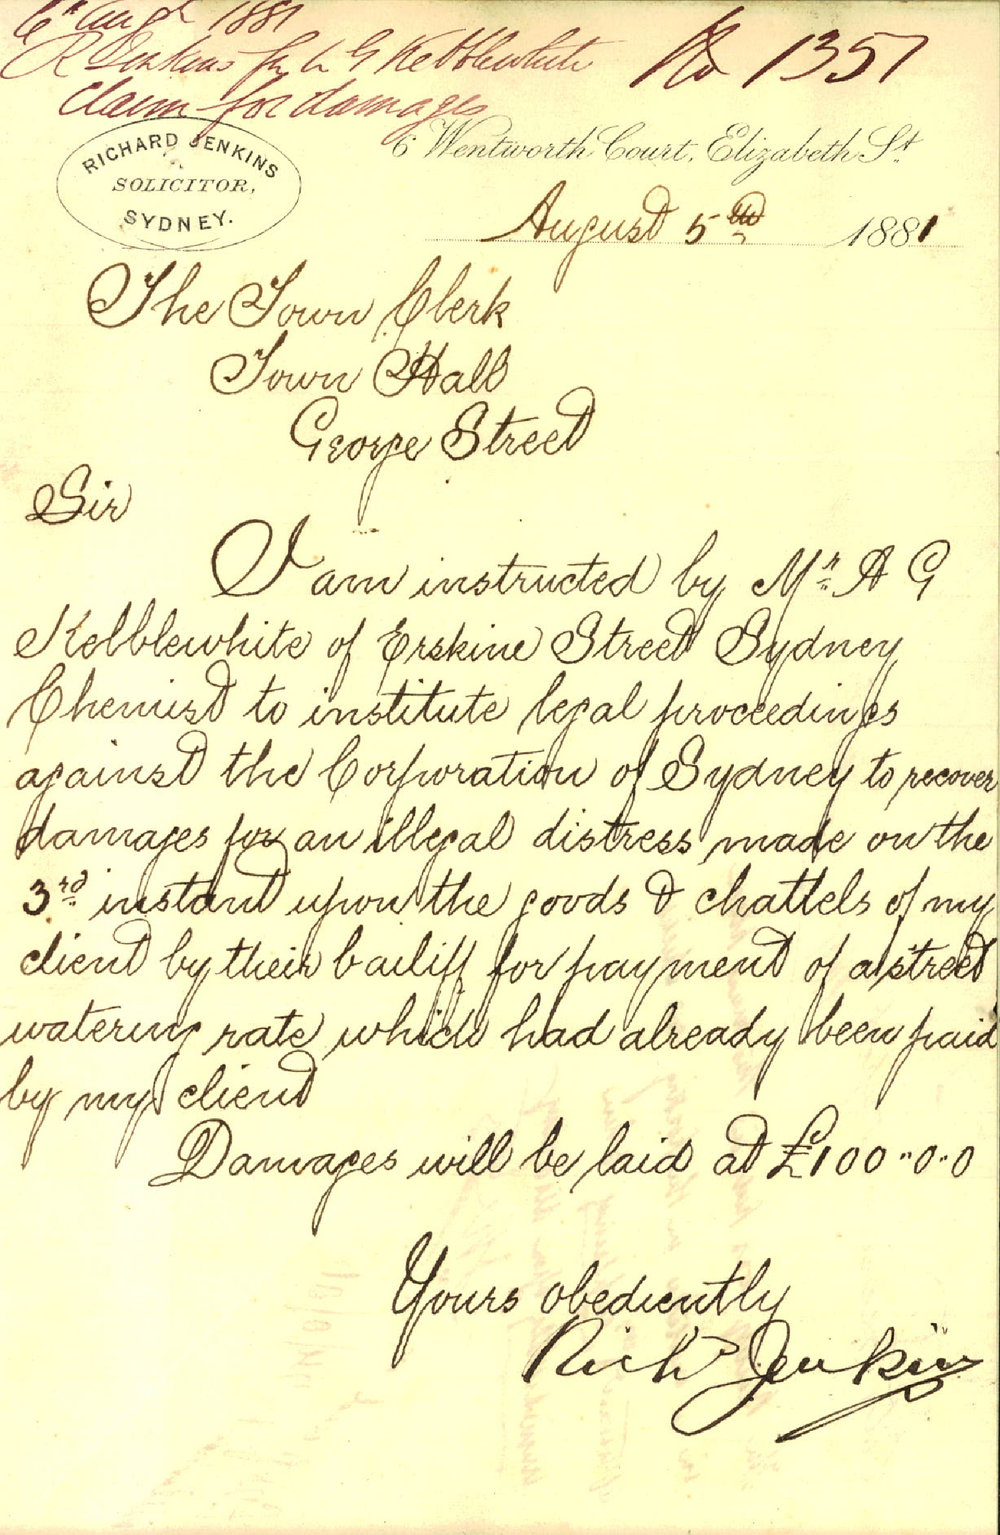 6th Augst 1881
R Jenkins for A G Kebblewhite
No 1357
Claim for damages
RICHARD JENKINS
SOLICITOR,
SYDNEY.
6 Wentworth Court, Elizabeth St.
August 5th 1881
The Town Clerk
Town Hall
George Street
Sir
I am instructed by Mr. A G
Kebblewhite of Erskine Street Sydney
Chemist to institute legal proceedings
against the Corporation of Sydney to recover
damages for an illegal distress made on the
3rd instant upon the goods & chattels of my
client by their bailiff for payment of a street
watering rate which had already been paid
by my client
Damages will be laid at £100"0"0
Yours obediently
Richd Jenkins